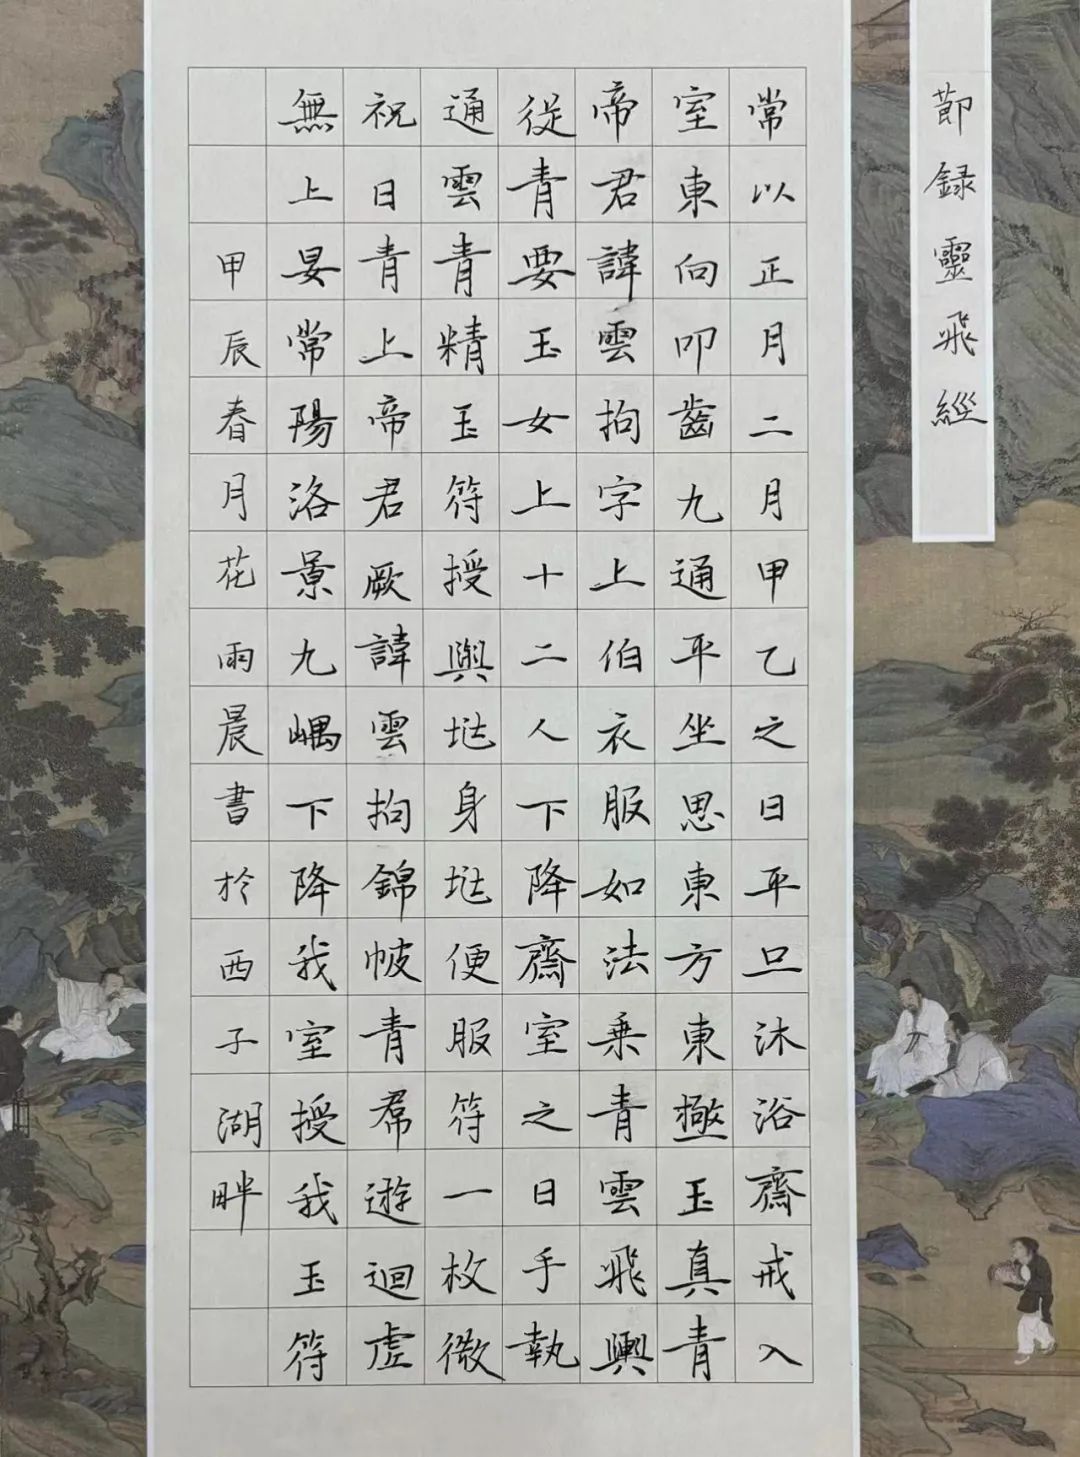 節録靈飛經
常以正月二月甲乙之日平旦沐浴齋戒入
室東向叩齒九通平坐思東方東極玉真青
帝君諱雲拘字上伯衣服如法乘青雲飛輿
從青要玉女上十二人下降齋室之日手執
通雲青精玉符授與㘴身㘴便服符一枚微
祝曰青上帝君厥諱雲拘錦帔青帬遊迴虛
無上晏常陽洛景九嵎下降我室授我玉符
甲辰春月花雨晨書於西子湖畔